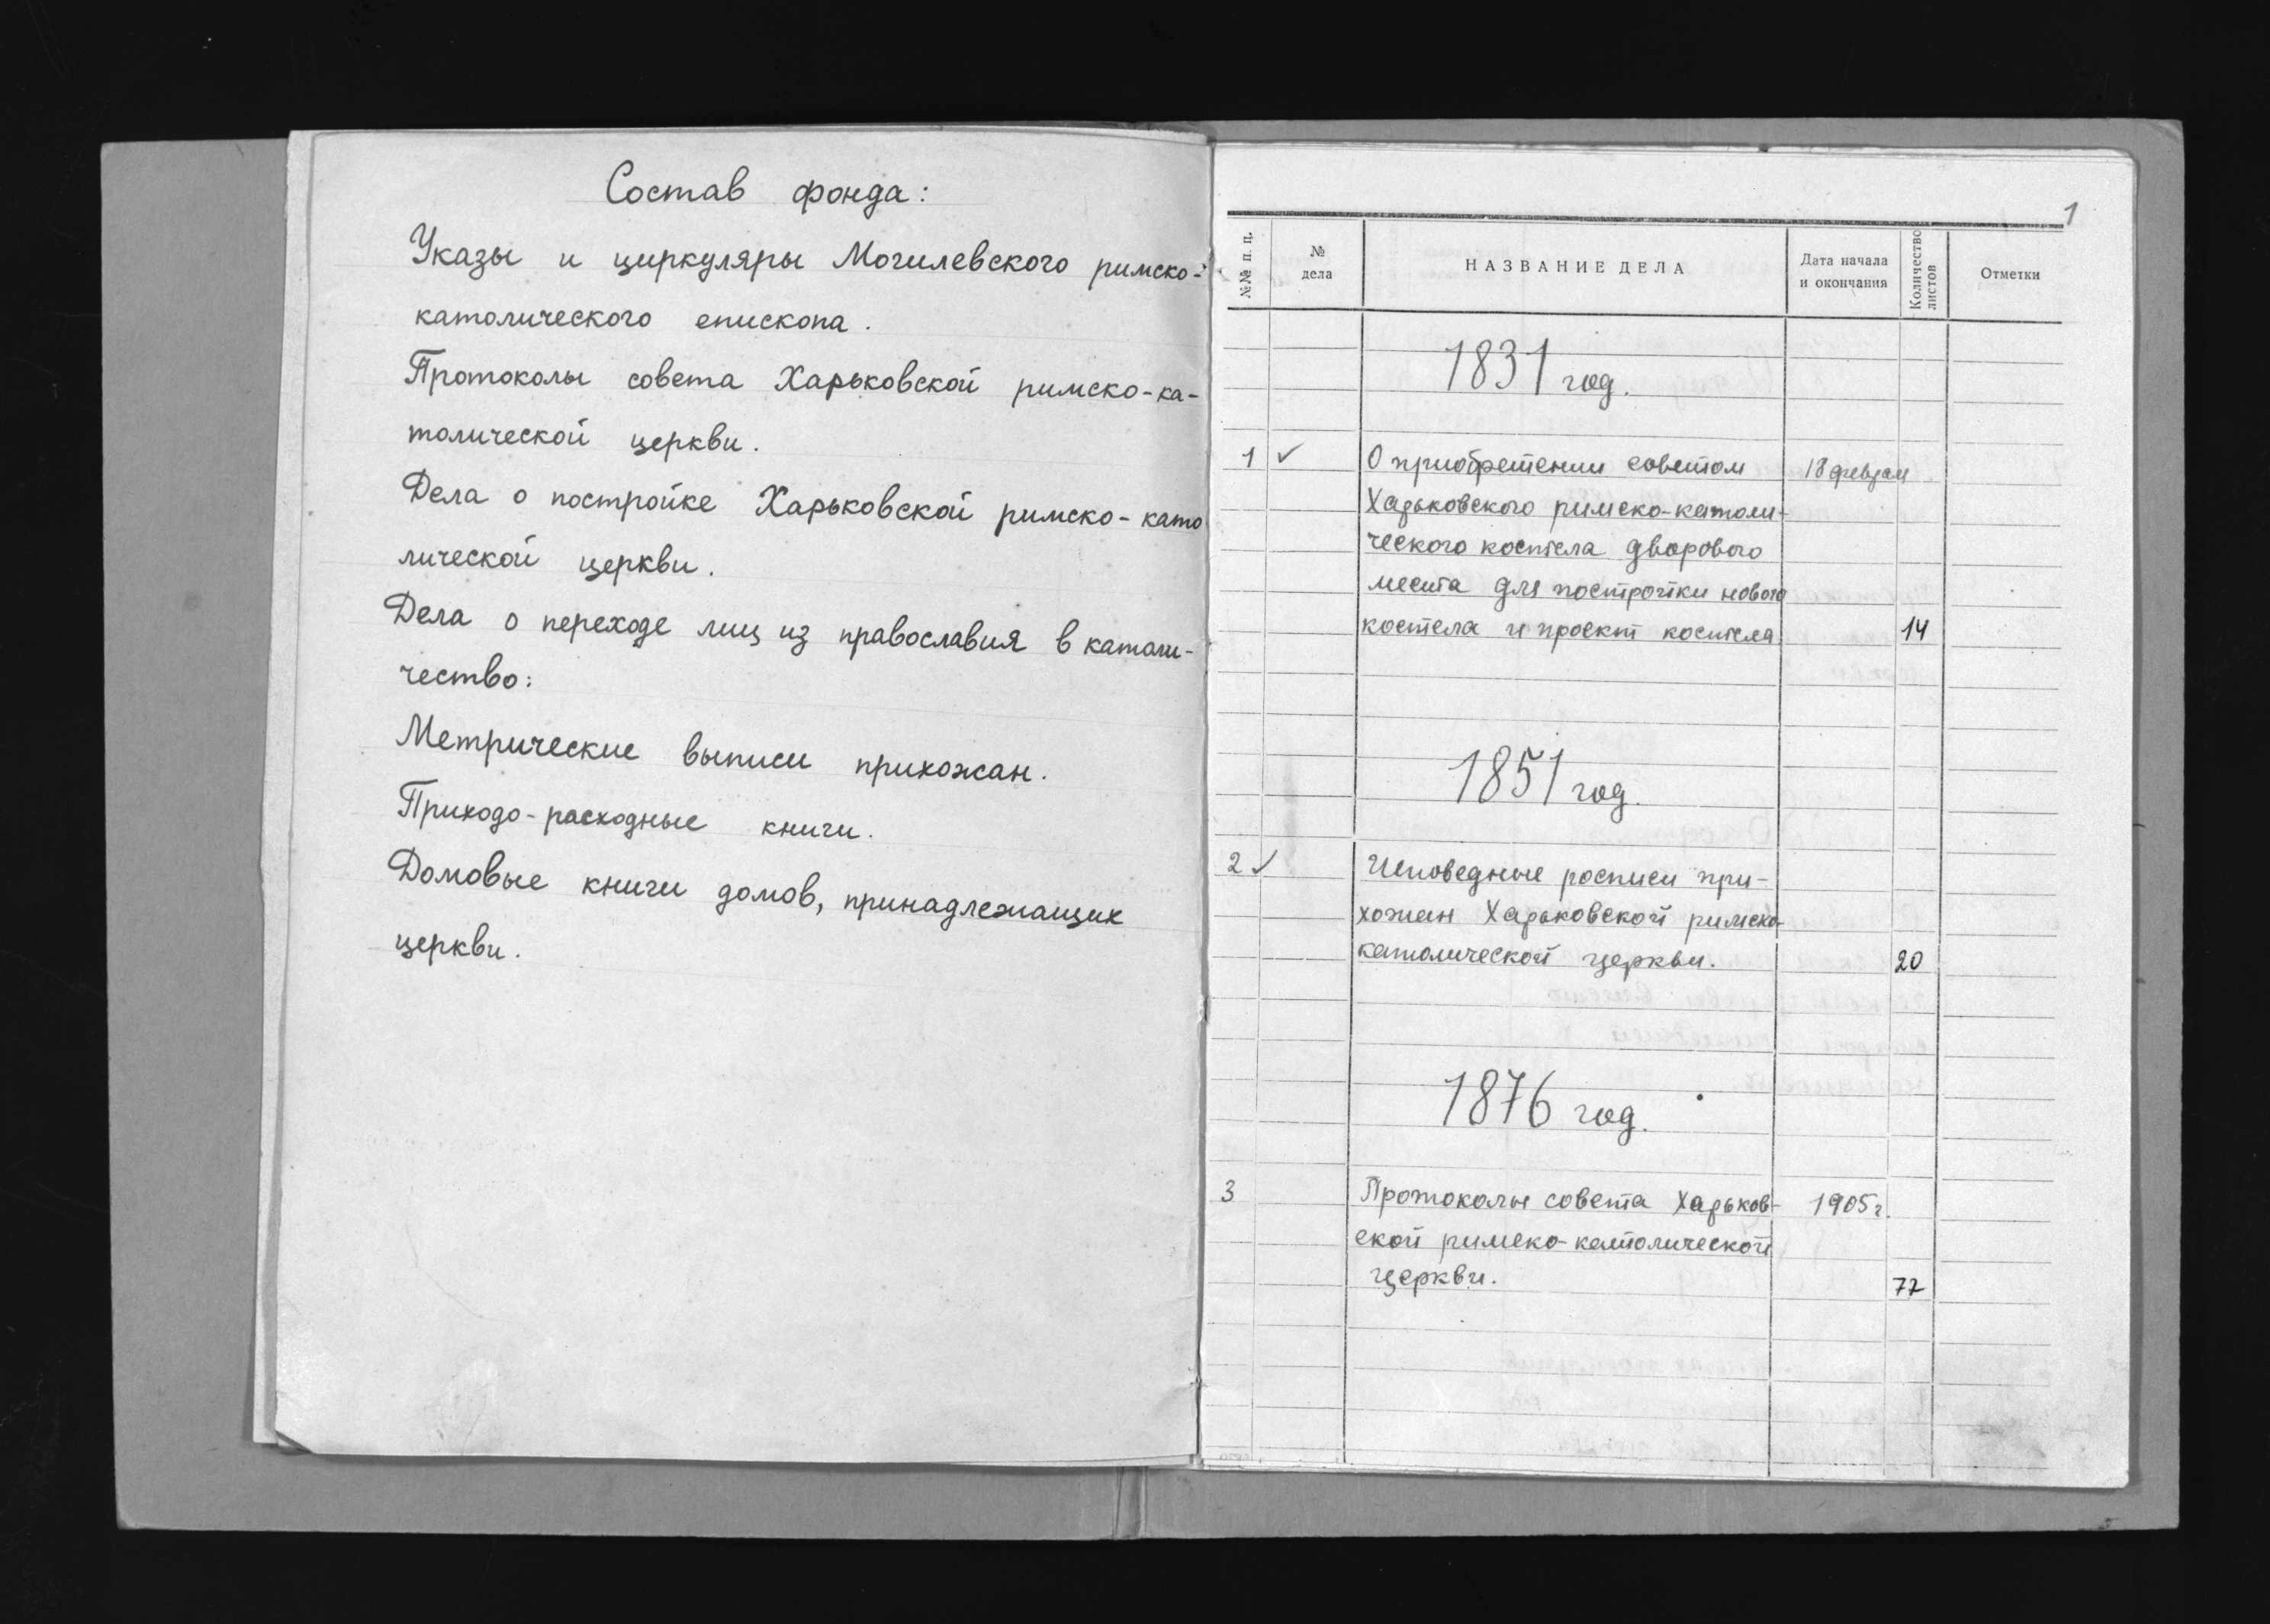 Состав фонда:
Указы и циркуляры Могилевского римско-
католического епископа.
Протоколы совета Харьковской римско-ка-
толической церкви.
Дела о постройке Харьковской римско-като
лической церкви.
Дела о переходе лиц из православия в католи-
чество:
Метрические выписи прихожан.
Приходо-расходные книги.
Домовые книги домов, принадлежащих
церкви.
1
№№ п. п.
№ дела
НАЗВАНИЕ ДЕЛА
Дата начала и окончания
Количество листов
Отметки
1831 год.
1 ✓ О приобретении советом 18 февраля
Харьковского римско-католи-
ческого костела дворового
места для постройки нового
костела и проект костела 14
1851 год.
2 ✓ Исповедные росписи при-
хожан Харьковской римско-
католической церкви. 20
1876 год.
3 Протоколы совета Харьков- 1905 г.
ской римско-католической
церкви. 77